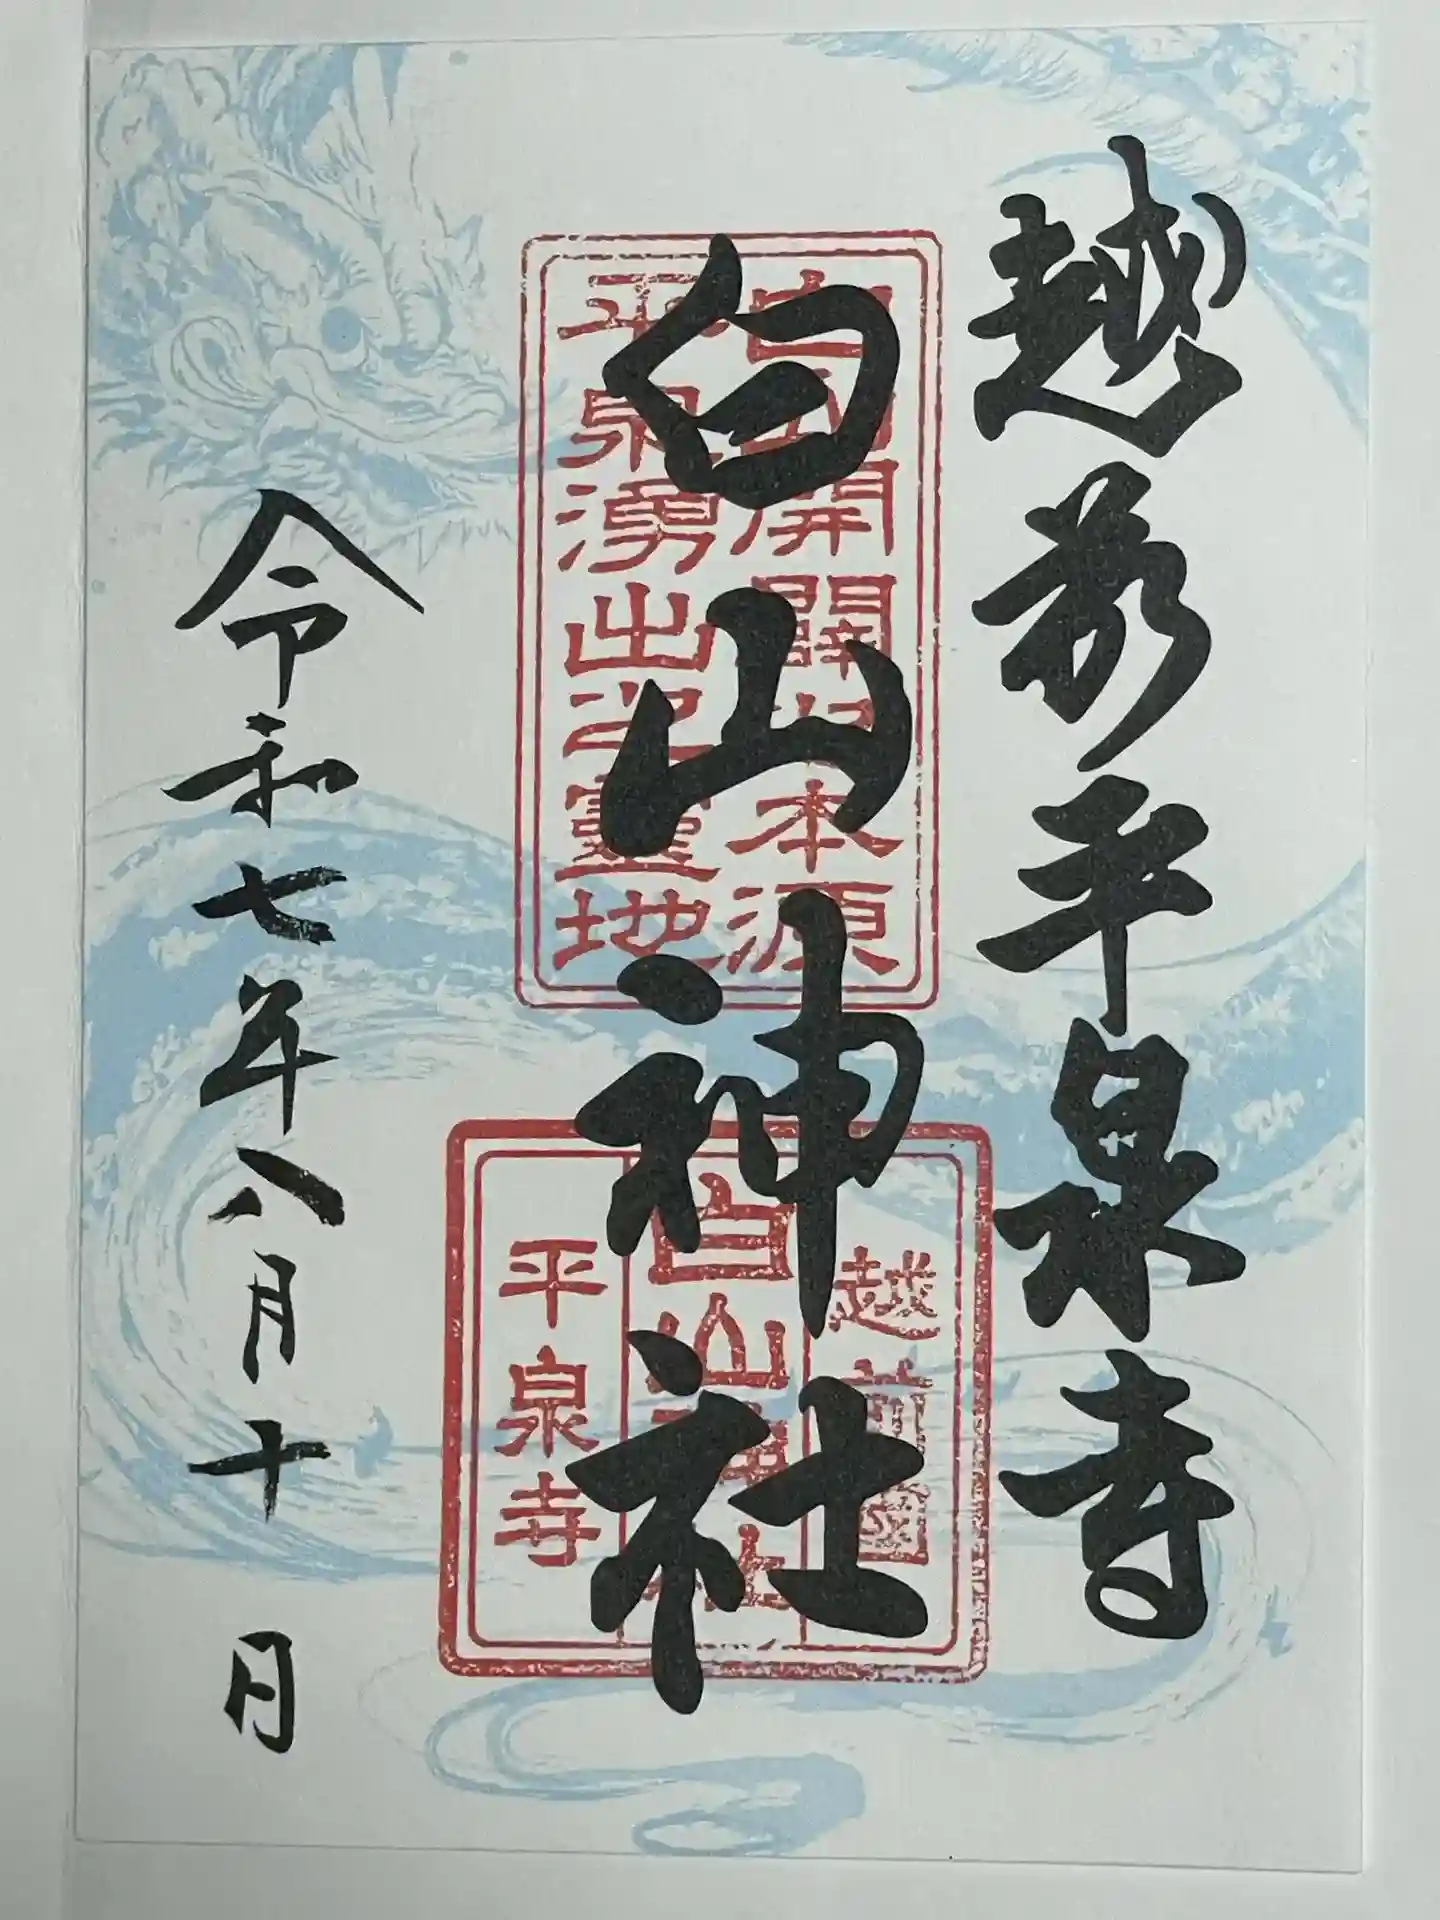 越前平泉寺
白山神社
令和七年八月十日
白山開闢之本源
平泉湧出之靈地
越前國
白山神社
平泉寺